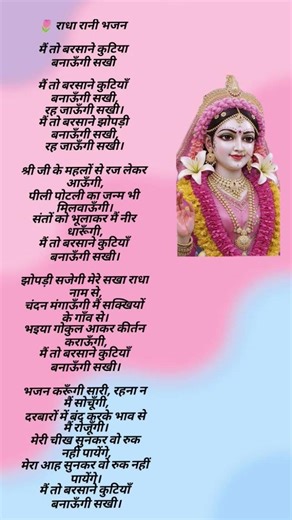 🌷 राधा रानी भजन
मैं तो बरसाने कुटिया
बनाऊँगी सखी
मैं तो बरसाने कुटियाँ
बनाऊँगी सखी,
रह जाऊँगी सखी।
मैं तो बरसाने झोपड़ी
बनाऊँगी सखी,
रह जाऊँगी सखी।
श्री जी के महलों से रज लेकर
आऊँगी,
पीली पोटली का जन्म भी
मिलवाऊँगी।
संतों को भूलाकर मैं नीर
धारूँगी,
मैं तो बरसाने कुटियाँ
बनाऊँगी सखी।
झोपड़ी सजेगी मेरे सखा राधा
नाम से,
चंदन मंगाऊँगी मैं सक्खियों
के गाँव से।
भइया गोकुल आकर कीर्तन
कराऊँगी,
मैं तो बरसाने कुटियाँ
बनाऊँगी सखी।
भजन करूँगी सारी, रहना न
मैं सोचूँगी,
दरबारों में बंद करके भाव से
मैं रोजूँगी।
मेरी चीख सुनकर वो रुक
नहीं पायेंगे,
मेरा आह सुनकर वो रुक नहीं
पायेंगे।
मैं तो बरसाने कुटियाँ
बनाऊँगी सखी।